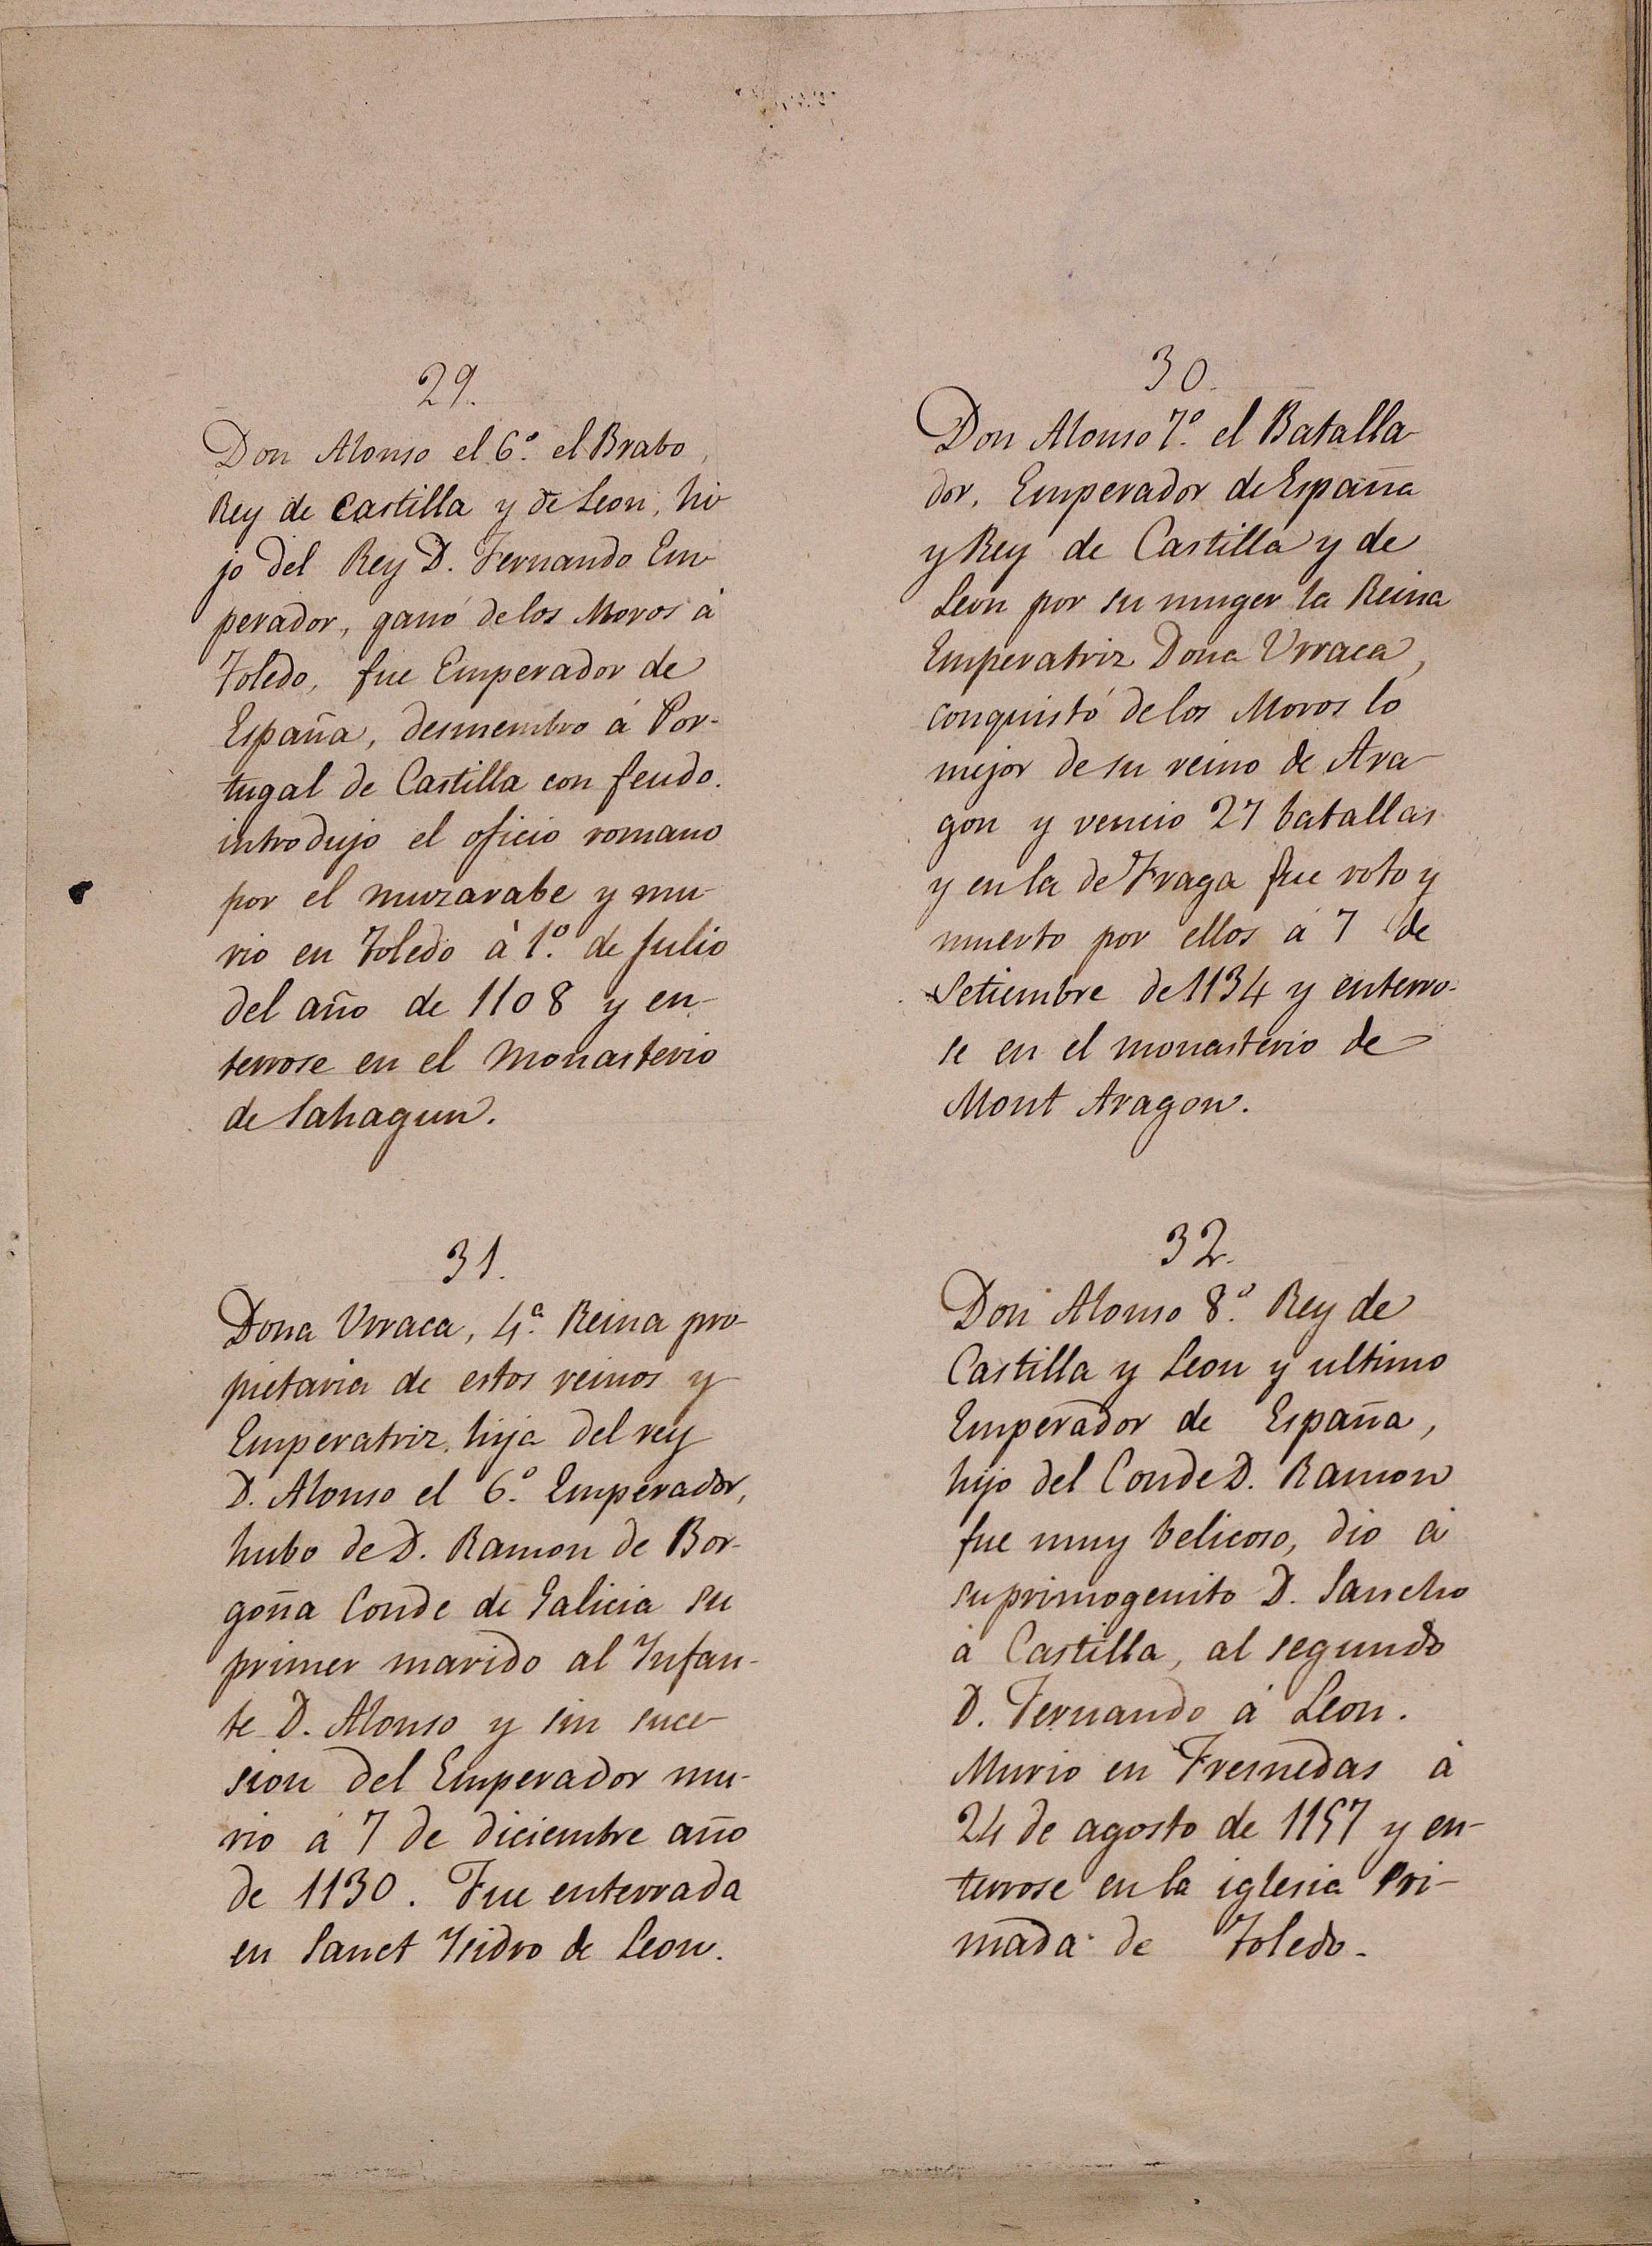 29.
Don Alonso el 6.º el Brabo,
Rey de Castilla y de Leon, hi-
jo del Rey D. Fernando Em-
perador, ganó de los Moros á
Toledo, fue Emperador de
España, desmembro á Por-
tugal de Castilla con feudo.
introdujo el oficio romano
por el muzarabe y mu-
rio en Toledo à 1.º de Julio
del año de 1108 y en-
terrose en el Monasterio
de Sahagun.
30.
Don Alonso 7.º el Batalla-
dor, Emperador de España
y Rey de Castilla y de
Leon por su muger la Reina
Emperatriz Dona Urraca,
conquistó de los Moros lo
mejor de su reino de Ara-
gon y vencio 27 batallas
y en la de Fraga fue roto y
muerto por ellos á 7 de
Setiembre de 1134 y enterro-
se en el monasterio de
Mont Aragon.
31.
Dona Urraca, 4.ª Reina pro-
pietaria de estos reinos y
Emperatriz, hija del rey
D. Alonso el 6.º Emperador,
hubo de D. Ramon de Bor-
goña Conde de Galicia su
primer marido al Infan-
te D. Alonso y sin suce-
sion del Emperador mu-
rio á 7 de diciembre año
de 1130. Fue enterrada
en Sanct Isidro de Leon.
32.
Don Alonso 8.º Rey de
Castilla y Leon y ultimo
Emperador de España,
hijo del Conde D. Ramon
fue muy belicoso, dio á
su primogenito D. Sancho
à Castilla, al segundo
D. Fernando á Leon.
Murio en Fresnedas á
24 de agosto de 1157 y en-
terrose en la iglesia Pri-
mada de Toledo.